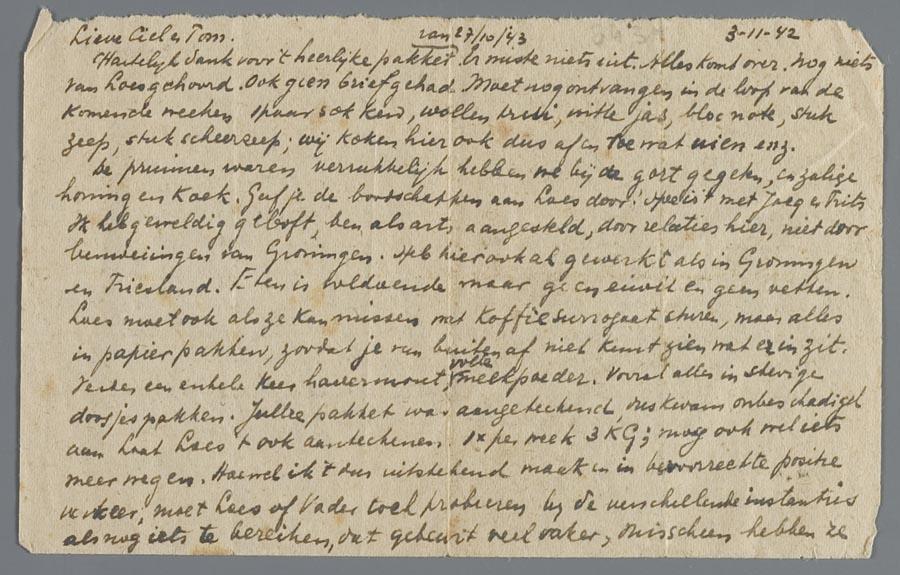 Lieve Ciel en Tom. van 27/10/43 3-11-42
Hartelijk dank voor 't heerlijke pakket. Er miste niets uit. Alles komt over. Nog niets
van Loes gehoord. Ook geen brief gehad. Moet nog ontvangen in de loop van de
komende weken 1 paar sokken, wollen trui, witte jas, blocnote, stuk
zeep, stuk scheerzeep; wij koken hier ook dus af en toe wat uien enz.
De pruimen waren verrukkelijk hebben we bij de gort gegeten, en zalige
honing en koek. Geef je de boodschappen aan Loes door? Hoe is 't met Jaap en Frits
Ik heb geweldig geboft, ben als arts aangesteld, door relaties hier, niet door
bemoeiingen van Groningen. Heb hier ook al gewerkt als in Groningen
en Friesland. Eten is voldoende maar geen eiwit en geen vetten.
Loes moet ook als ze kan missen wat koffiesurrogaat sturen, maar alles
in papier pakken, zoodat je van buiten af niet kunt zien wat er in zit.
Verder een enkele keer havermout, volle melkpoeder. Vooral alles in stevige
doosjes pakken. Jullie pakket was aangetekend dus kwam onbeschadigd
aan Laat Loes 't ook aantekenen. 1x per week 3 KG; mag ook wel iets
meer wegen. Hoewel ik 't dus uitstekend maak en in bevoorrechte positie
verkeer, moet Loes of Vader toch proberen bij de verschillende instanties
alsnog iets te bereiken, dat gebeurt veel vaker, misschien hebben ze